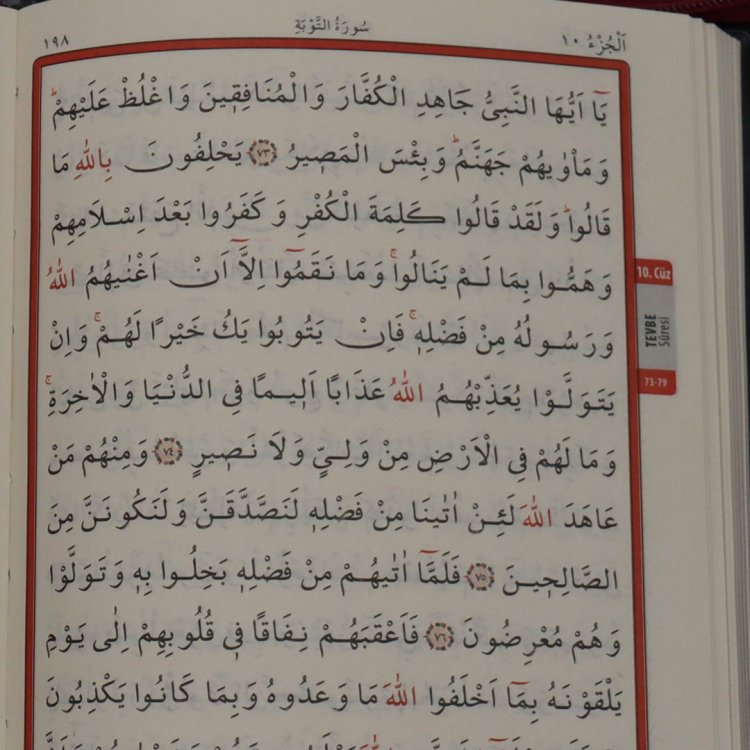 اَلْجُزْءُ ١٠
سُورَةُ التَّوْبَةِ
١٩٨
يَٓا اَيُّهَا النَّبِيُّ جَاهِدِ الْكُفَّارَ وَالْمُنَافِقٖينَ وَاغْلُظْ عَلَيْهِمْؕ
وَمَاْوٰيهُمْ جَهَنَّمُؕ وَبِئْسَ الْمَصٖيرُ ﴿٧٣﴾ يَحْلِفُونَ بِاللّٰهِ مَا
قَالُواؕ وَلَقَدْ قَالُوا كَلِمَةَ الْكُفْرِ وَكَفَرُوا بَعْدَ اِسْلَامِهِمْ
وَهَمُّوا بِمَا لَمْ يَنَالُواۚ وَمَا نَقَمُٓوا اِلَّٓا اَنْ اَغْنٰيهُمُ اللّٰهُ
وَرَسُولُهُ مِنْ فَضْلِهٖۚ فَاِنْ يَتُوبُوا يَكُ خَيْرًا لَهُمْۚ وَاِنْ
يَتَوَلَّوْا يُعَذِّبْهُمُ اللّٰهُ عَذَابًا اَلٖيمًا فِي الدُّنْيَا وَالْاٰخِرَةِۚ
وَمَا لَهُمْ فِي الْاَرْضِ مِنْ وَلِيٍّ وَلَا نَصٖيرٍ ﴿٧٤﴾ وَمِنْهُمْ مَنْ
عَاهَدَ اللّٰهَ لَئِنْ اٰتٰينَا مِنْ فَضْلِهٖ لَنَصَّدَّقَنَّ وَلَنَكُونَنَّ مِنَ
الصَّالِحٖينَ ﴿٧٥﴾ فَلَمَّٓا اٰتٰيهُمْ مِنْ فَضْلِهٖ بَخِلُوا بِهٖ وَتَوَلَّوْا
وَهُمْ مُعْرِضُونَ ﴿٧٦﴾ فَاَعْقَبَهُمْ نِفَاقًا فٖي قُلُوبِهِمْ اِلٰى يَوْمِ
يَلْقَوْنَهُ بِمَٓا اَخْلَفُوا اللّٰهَ مَا وَعَدُوهُ وَبِمَا كَانُوا يَكْذِبُونَ
10. Cüz
TEVBE
Sûresi
73-79